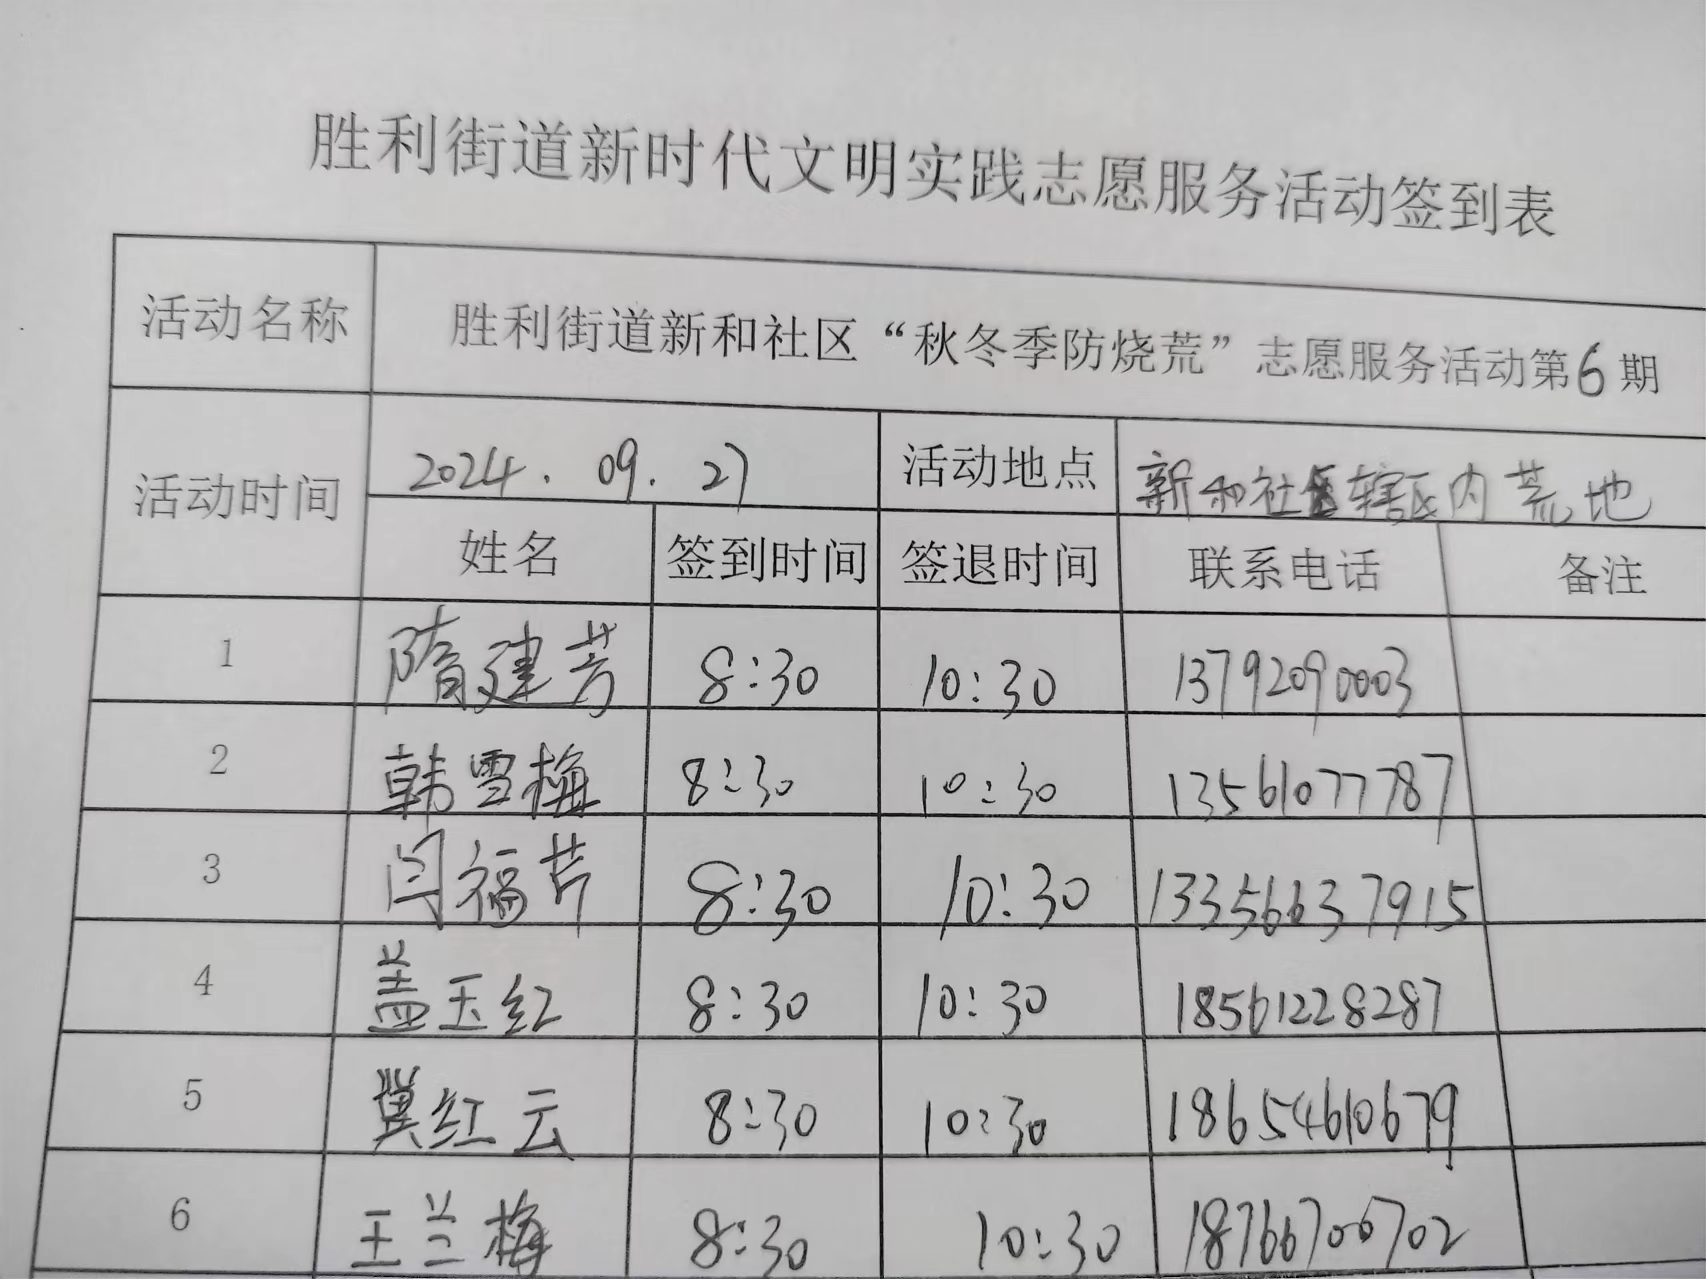 胜利街道新时代文明实践志愿服务活动签到表
活动名称 胜利街道新和社区“秋冬季防烧荒”志愿服务活动第6期
活动时间 2024.09.27 活动地点 新和社区辖区内荒地
姓名 签到时间 签退时间 联系电话 备注
1 隋建芳 8:30 10:30 13792090003
2 韩雪梅 8:30 10:30 13561077787
3 闫福芹 8:30 10:30 13356637915
4 盖玉红 8:30 10:30 18561228287
5 冀红云 8:30 10:30 18654610679
6 王兰梅 8:30 10:30 18766706702